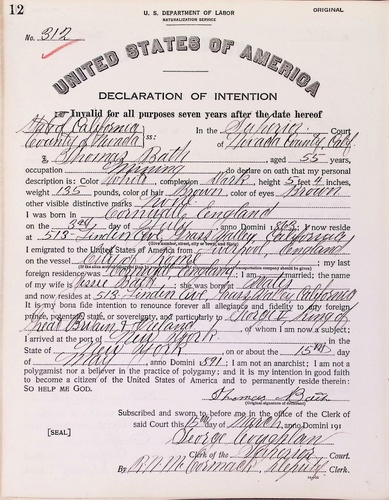 12
U. S. DEPARTMENT OF LABOR
NATURALIZATION SERVICE
ORIGINAL
No. 312
UNITED STATES OF AMERICA
DECLARATION OF INTENTION
Invalid for all purposes seven years after the date hereof
State of California
County of Nevada ss: In the Superior Court of Nevada County, Calif.
I, Thomas Bath, aged 55 years,
occupation Mining, do declare on oath that my personal
description is: Color White, complexion Dark, height 5 feet 4 inches,
weight 135 pounds, color of hair Brown, color of eyes Brown
other visible distinctive marks
I was born in Cornwall, England
on the day of, anno Domini 1; I now reside
at 513 Linden Ave, Grass Valley, California
(Give number, street, city or town, and State)
I emigrated to the United States of America from Liverpool, England
on the vessel City of Rome; my last
(If the alien arrived otherwise than by vessel, the character of conveyance or name of transportation company should be given)
foreign residence was Cornwall, England; I am married; the name
of my wife is Bath; she was born at Wales
and now resides at 513 Linden Ave, Grass Valley, California
It is my bona fide intention to renounce forever all allegiance and fidelity to any foreign
prince, potentate, state, or sovereignty, and particularly to George, King of
Great Britain & Ireland, of whom I am now a subject;
I arrived at the port of New York, in the
State of New York, on or about the 15th day
of May, anno Domini 1891; I am not an anarchist; I am not a
polygamist nor a believer in the practice of polygamy; and it is my intention in good faith
to become a citizen of the United States of America and to permanently reside therein:
SO HELP ME GOD.
Thomas Bath
(Original signature of declarant)
Subscribed and sworn to before me in the office of the Clerk of
said Court this day of March, anno Domini 191
[SEAL]
George Coughlan
Clerk of the Superior Court.
By R. N. McCormack, Deputy Clerk.